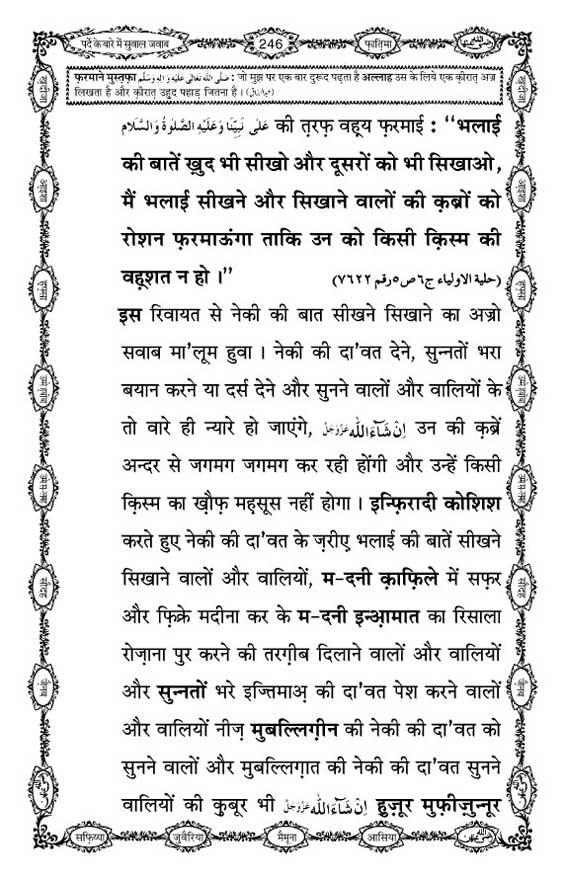 पर्दे के बारे में सुवाल जवाब 246 फ़ातिमा
फ़रमाने मुस्तफ़ा صَلَّى اللهُ تَعَالٰى عَلَيْهِ وَاٰلِهٖ وَسَلَّم : जो मुझ पर एक बार दुरूद पढ़ता है अल्लाह उस के लिये एक क़ीरात अज्र
लिखता है और क़ीरात उहुद पहाड़ जितना है ।
عَلٰى نَبِيِّنَا وَعَلَيْهِ الصَّلٰوةُ وَالسَّلَام की त़रफ़ वह़्य फ़रमाई : ‘‘भलाई
की बातें ख़ुद भी सीखो और दूसरों को भी सिखाओ,
मैं भलाई सीखने और सिखाने वालों की क़ब्रों को
रोशन फ़रमाऊंगा ताकि उन को किसी क़िस्म की
वह़्शत न हो ।’’ (حلية الاولياء ج٦ ص٥ رقم ٧٦٢٢)
इस रिवायत से नेकी की बात सीखने सिखाने का अज्रो
सवाब मा'लूम हुवा । नेकी की दा'वत देने, सुन्नतों भरा
बयान करने या दर्स देने और सुनने वालों और वालियों के
तो वारे ही न्यारे हो जाएंगे, اِنْ شَآءَاللّٰه عَزَّوَجَلَّ उन की क़ब्रें
अन्दर से जगमग जगमग कर रही होंगी और उन्हें किसी
क़िस्म का ख़ौफ़ मह़सूस नहीं होगा । इन्फ़िरादी कोशिश
करते हुए नेकी की दा'वत के ज़रीए भलाई की बातें सीखने
सिखाने वालों और वालियों, म-दनी क़ाफ़िले में सफ़र
और फ़िक्रे मदीना कर के म-दनी इन्आ़मात का रिसाला
रोज़ाना पुर करने की तरग़ीब दिलाने वालों और वालियों
और सुन्नतों भरे इज्तिमाअ़ की दा'वत पेश करने वालों
और वालियों नीज़ मुबल्लिग़ीन की नेकी की दा'वत को
सुनने वालों और मुबल्लिग़ात की नेकी की दा'वत सुनने
वालियों की क़ुबूर भी اِنْ شَآءَاللّٰه عَزَّوَجَلَّ हुज़ूर मुफ़ीज़ुन्नूर
सफ़िय्या जुवैरिया मैमूना आसिया